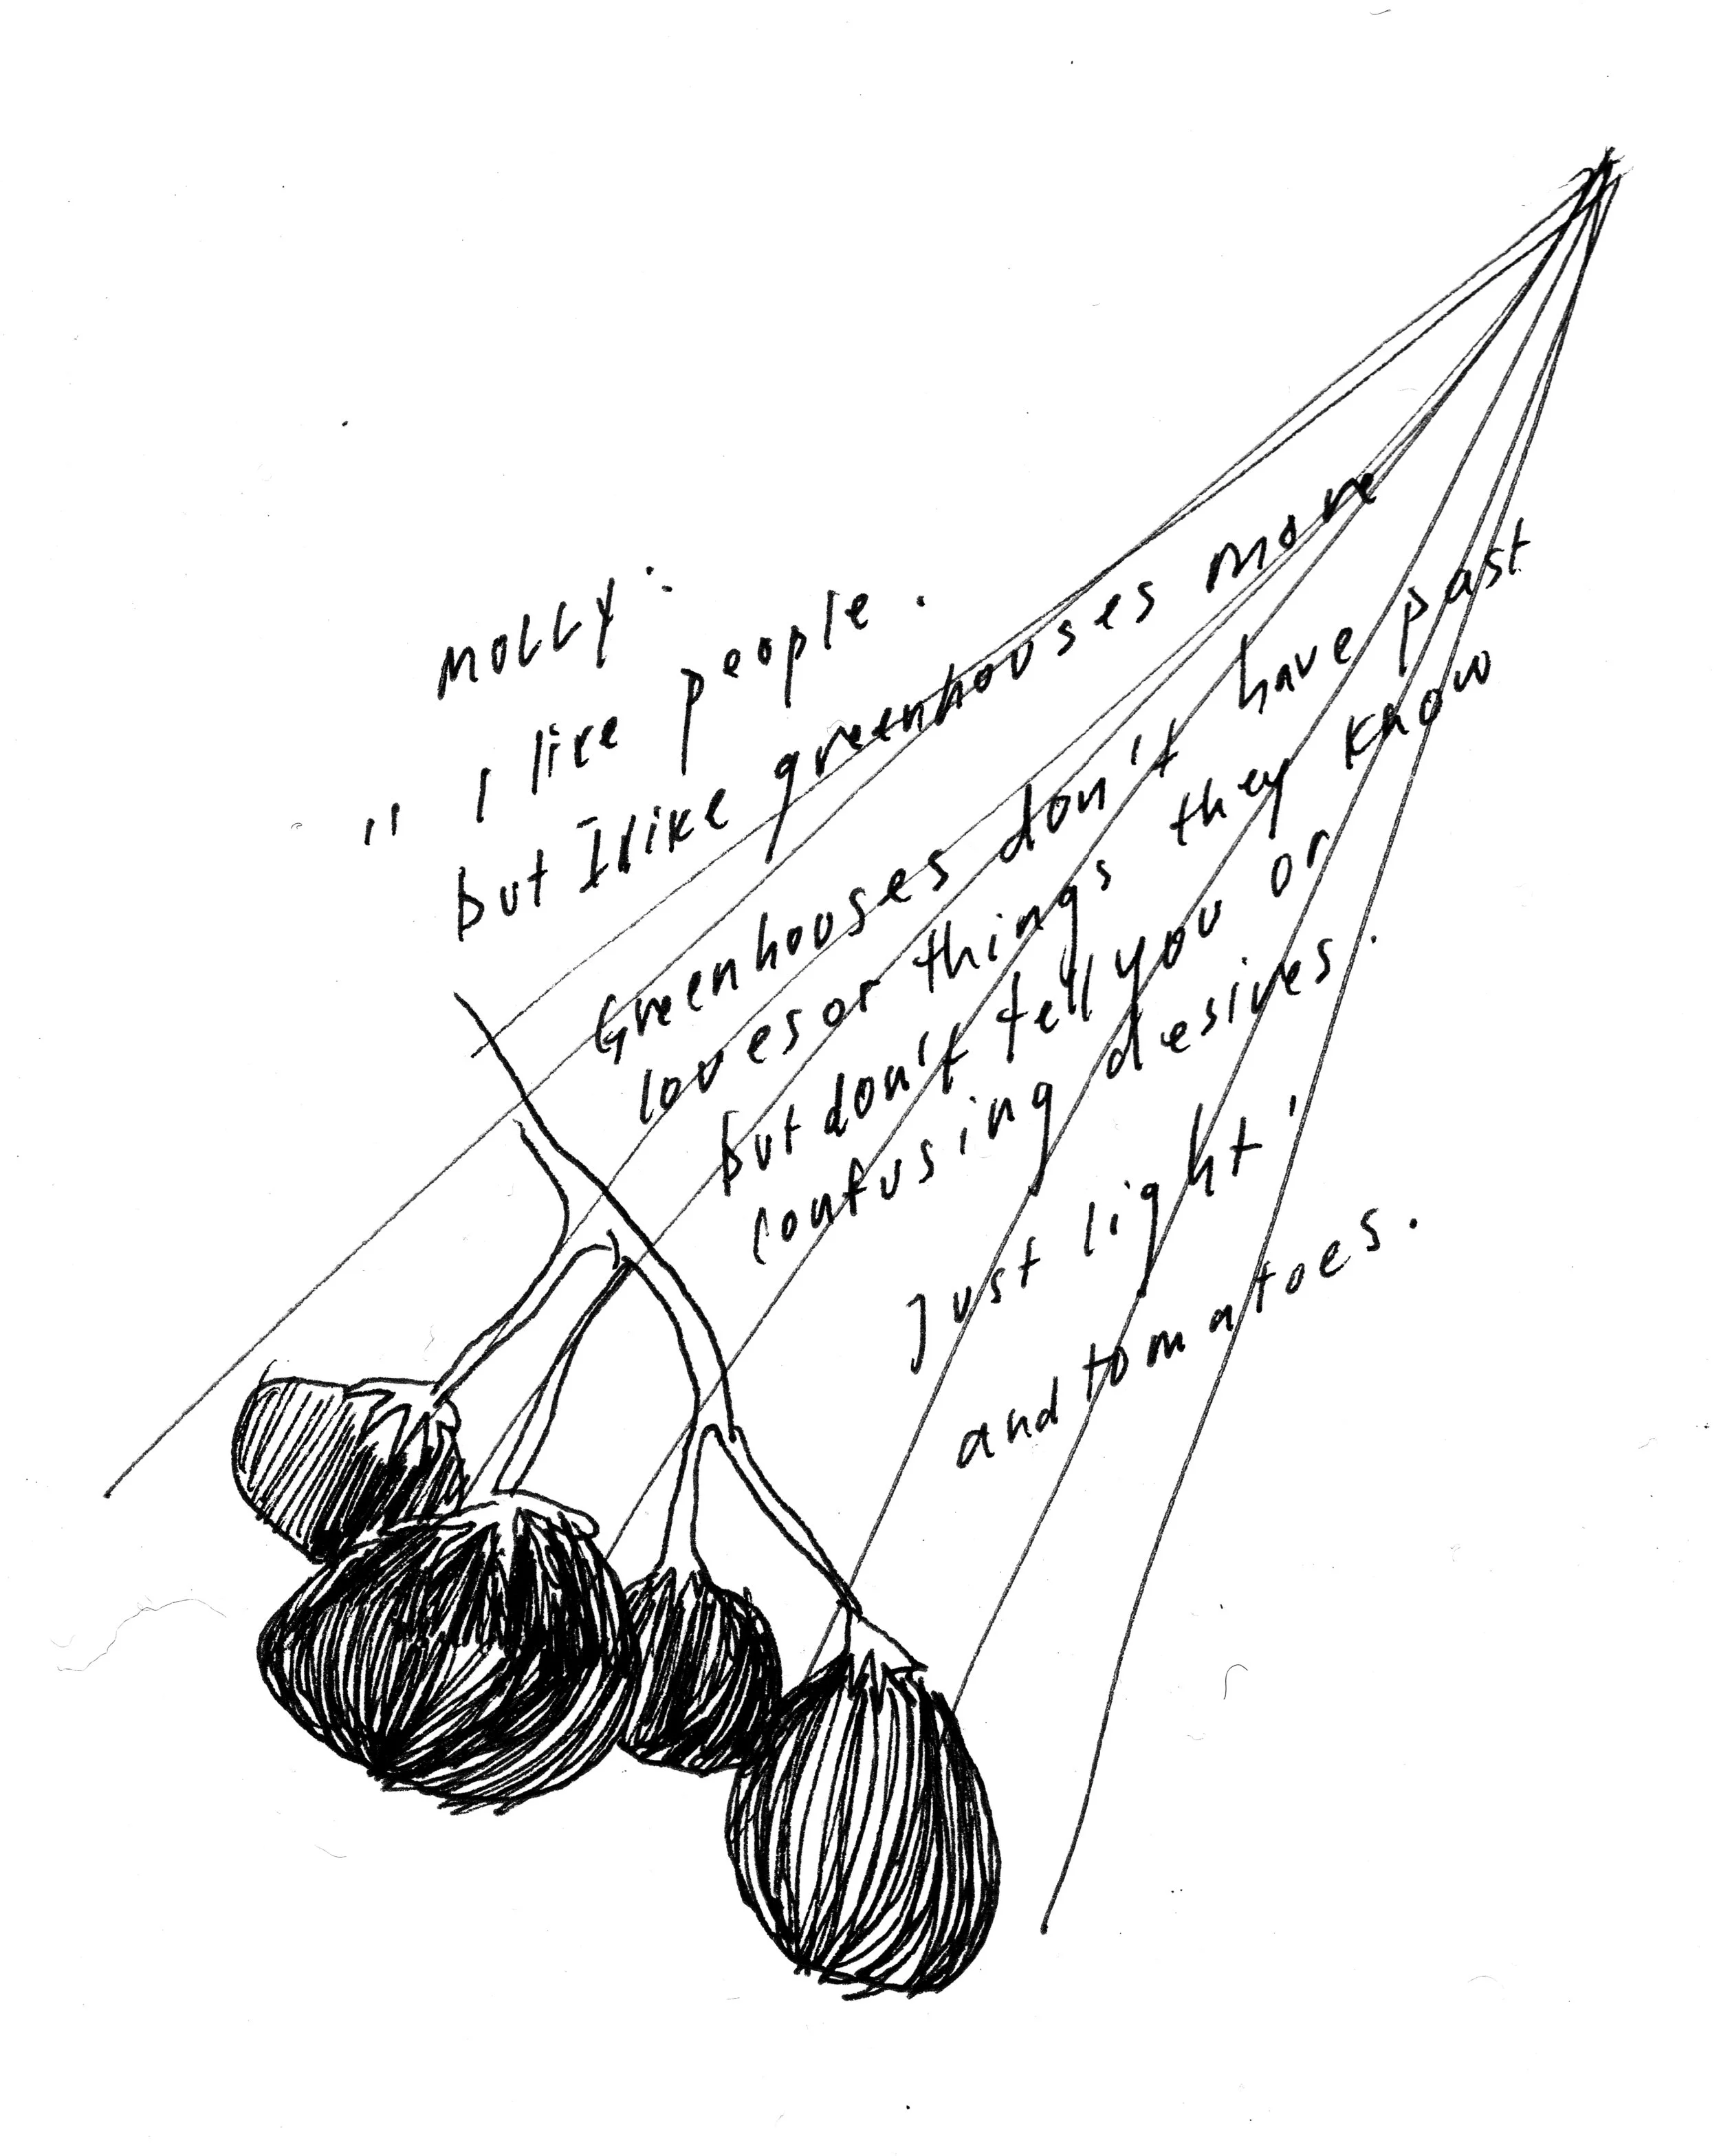 MOLLY:
" I like people.
but I like greenhouses more
Greenhouses don't have past
loves or things they know
but don't tell you or
confusing desires.
Just light '
and tomatoes.